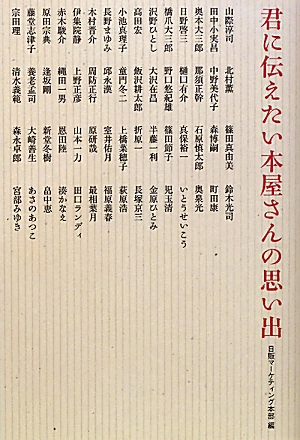 君に伝えたい本屋さんの思い出
日販マーケティング本部 編
山際淳司 北村薫 篠田真由美 鈴木光司
田中小実昌 中野美代子 森博嗣 町田康
奥本大三郎 那須正幹 石原慎太郎 奥泉光
日野啓三 樋口有介 真保裕一 いとうせいこう
橋爪大三郎 野口悠紀雄 篠田節子 児玉清
沢野ひとし 大沢在昌 半藤一利 金原ひとみ
高田宏 飯沢耕太郎 折原一 長塚京三
小池真理子 童門冬二 上橋菜穂子 荻原浩
長野まゆみ 邱永漢 室井佑月 福原義春
木村晋介 周防正行 原研哉 最相葉月
伊集院静 上野正彦 山本一力 田口ランディ
赤木駿介 縄田一男 恩田陸 湊かなえ
原田宗典 逢坂剛 新堂冬樹 畠中恵
藤堂志津子 養老孟司 大崎善生 あさのあつこ
宗田理 清水義範 森永卓郎 宮部みゆき